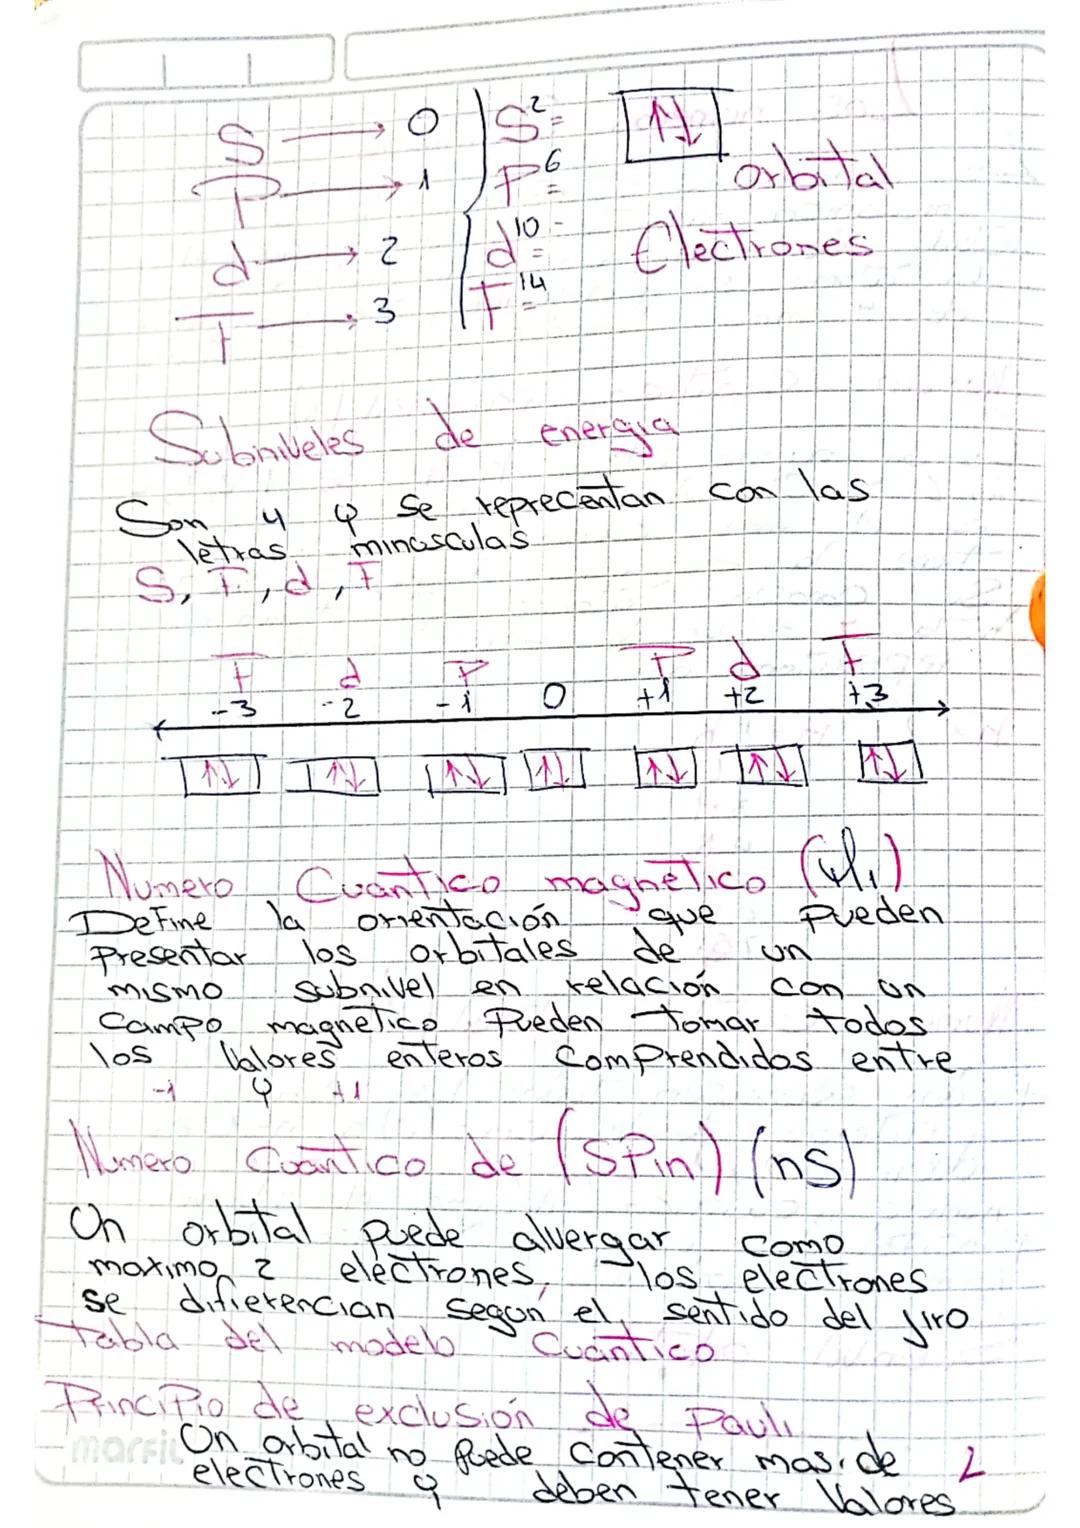 S → 0 | S² =
P → 1 | P⁶ =
orbital
d → 2 | d¹⁰ =
Electrones
F → 3 | F¹⁴ =
Subniveles de energia
Son 4 y se reprecentan con las
letras minusculas
S, P, d, F
F d P P d F
-3 -2 -1 0 +1 +2 +3
Numero Cuantico magnetico
Define la orientación que pueden
Presentar los orbitales de un
mismo subnivel en relación con un
Campo magnetico Pueden tomar todos
los Valores enteros ComPrendidos entre
-1 y +1
Numero Cuantico de (SPin) (nS)
Un orbital puede alvergar como
maximo 2 electrones, los electrones
se difierencian según el sentido del jiro
tabla del modelo Cuantico
PrinciPio de exclusión de Pauli
Un orbital no Puede Contener mas de 2
electrones y deben tener Valores
marfil